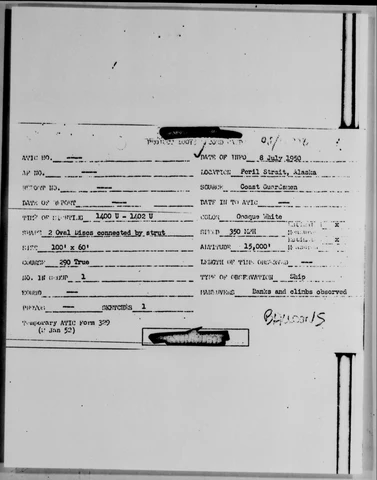 PROJECT 10073 RECORD CARD
ATIC NO. —— DATE OF INFO 8 July 1950
AF NO. —— LOCATION Peril Strait, Alaska
REPORT NO. —— SOURCE Coast Guardsmen
DATE OF REPORT —— DATE IN TO ATIC ——
TIME OF SIGHTING 1400 U - 1402 U COLOR Opaque White
SHAPE 2 Oval Discs connected by strut SPEED 350 MPH X
SIZE 100' x 60' ALTITUDE 15,000' X
COURSE 290 True LENGTH OF TIME OBSERVED ——
NO. IN GROUP 1 TYPE OF OBSERVATION Ship
SOUND —— MANEUVERS Banks and climbs observed
PHOTOS —— SKETCHES 1
Temporary ATIC Form 329
(2 Jan 52)
Balloons